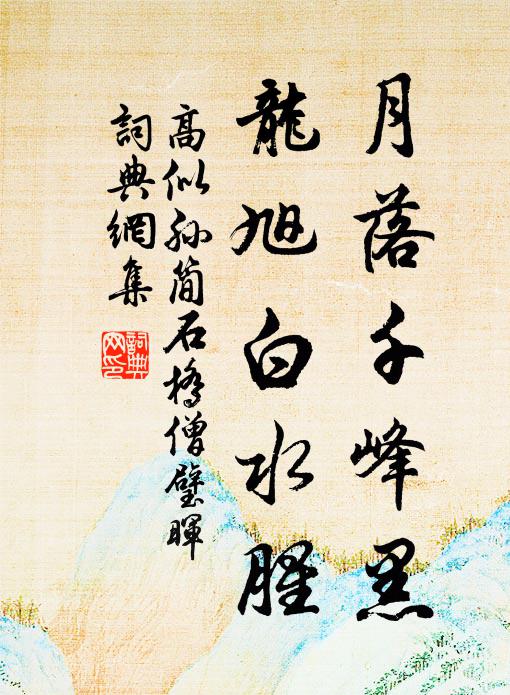 月落千峰黑
龍旭白水腥
高似孫簡石橋僧璧暉
詞典網集
詞典網印